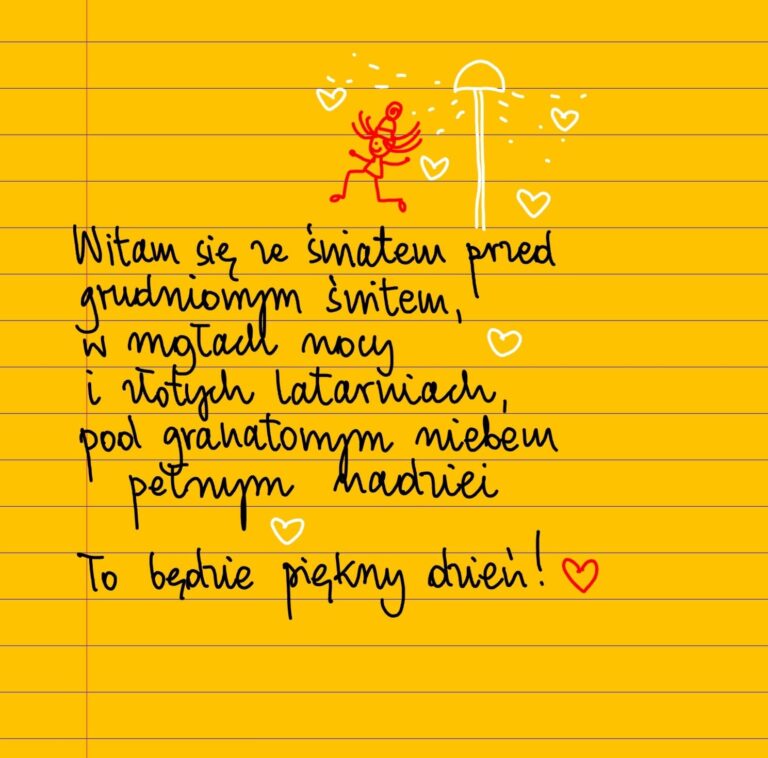 Witam się ze światem przed
grudniowym świtem,
w mgłach nocy
i złotych latarniach,
pod granatowym niebem
pełnym nadziei
To będzie piękny dzień!